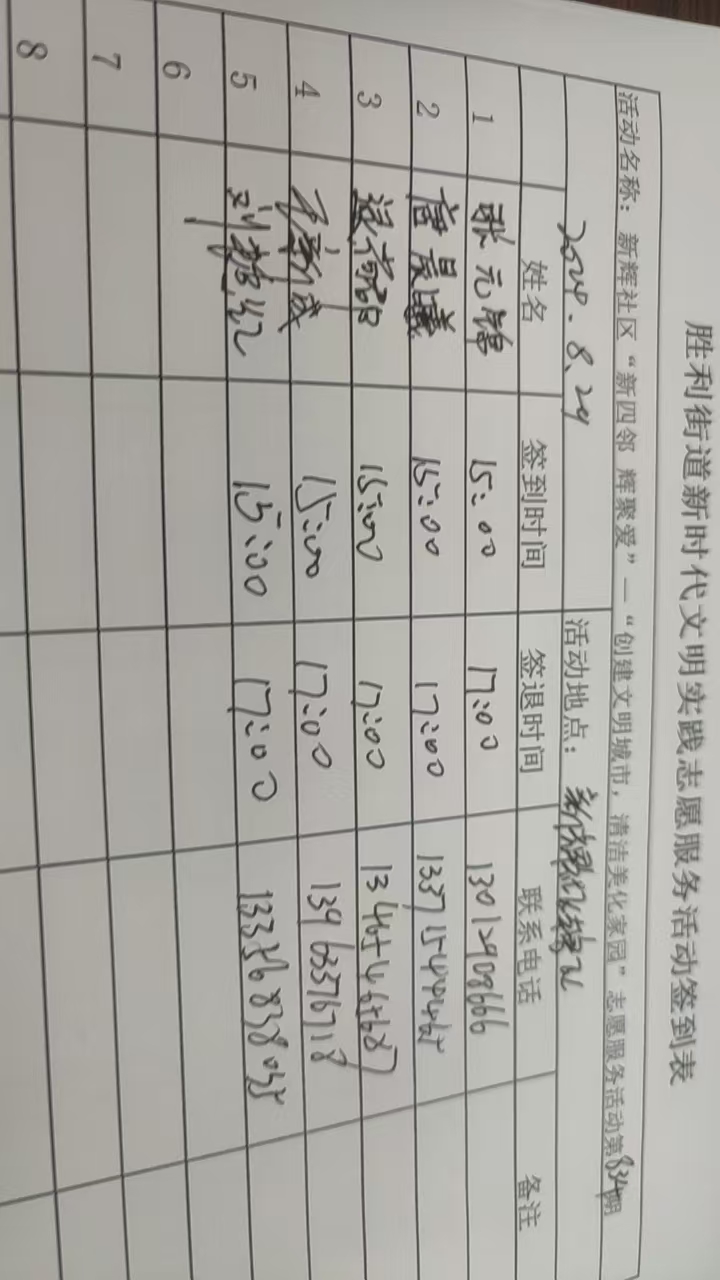 胜利街道新时代文明实践志愿服务活动签到表
活动名称：新辉社区“新四邻 辉聚爱”—“创建文明城市，清洁美化家园”志愿服务活动第834期
2024.8.29 活动地点：
姓名 签到时间 签退时间 联系电话 备注
1 张元锦 15:00 17:00 13012908666
2 唐晨曦 15:00 17:00
3 15:00 17:00 13465465687
4 15:00 17:00 13963376718
5 15:00 17:00
6
7
8